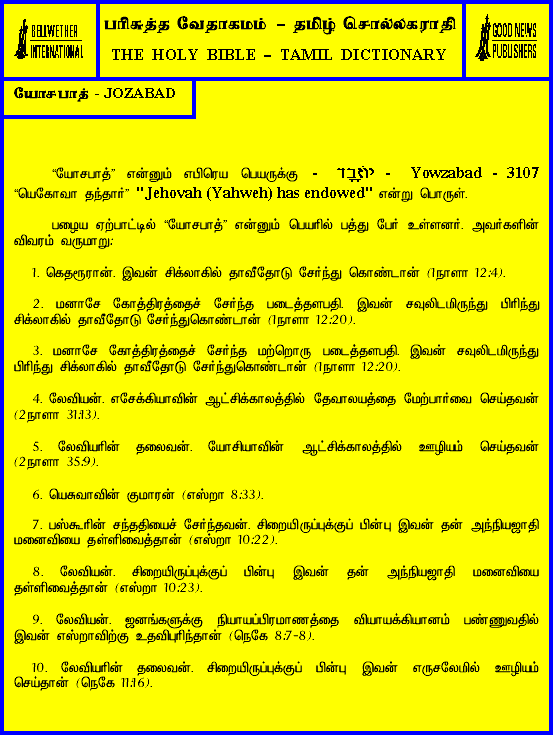 BELLWETHER
INTERNATIONAL
பரிசுத்த வேதாகமம் – தமிழ் சொல்லகராதி
THE HOLY BIBLE – TAMIL DICTIONARY
GOOD NEWS
PUBLISHERS
யோசபாத் - JOZABAD
“யோசபாத்” என்னும் எபிரெய பெயருக்கு - יוֹזָבָד - Yowzabad - 3107
“யெகோவா தந்தார்” "Jehovah (Yahweh) has endowed" என்று பொருள்.
பழைய ஏற்பாட்டில் “யோசபாத்” என்னும் பெயரில் பத்து பேர் உள்ளனர். அவர்களின்
விவரம் வருமாறு:
1. கெதரூரான். இவன் சிக்லாகில் தாவீதோடு சேர்ந்து கொண்டான் (1நாளா 12:4).
2. மனாசே கோத்திரத்தைச் சேர்ந்த படைத்தளபதி. இவன் சவுலிடமிருந்து பிரிந்து
சிக்லாகில் தாவீதோடு சேர்ந்துகொண்டான் (1நாளா 12:20).
3. மனாசே கோத்திரத்தைச் சேர்ந்த மற்றொரு படைத்தளபதி. இவன் சவுலிடமிருந்து
பிரிந்து சிக்லாகில் தாவீதோடு சேர்ந்துகொண்டான் (1நாளா 12:20).
4. லேவியன். எசேக்கியாவின் ஆட்சிக்காலத்தில் தேவாலயத்தை மேற்பார்வை செய்தவன்
(2நாளா 31:13).
5. லேவியரின் தலைவன். யோசியாவின் ஆட்சிக்காலத்தில் ஊழியம் செய்தவன்
(2நாளா 35:9).
6. யெசுவாவின் குமாரன் (எஸ்றா 8:33).
7. பஸ்கூரின் சந்ததியைச் சேர்ந்தவன். சிறையிருப்புக்குப் பின்பு இவன் தன் அந்நியஜாதி
மனைவியை தள்ளிவைத்தான் (எஸ்றா 10:22).
8. லேவியன். சிறையிருப்புக்குப் பின்பு இவன் தன் அந்நியஜாதி மனைவியை
தள்ளிவைத்தான் (எஸ்றா 10:23).
9. லேவியன். ஜனங்களுக்கு நியாயப்பிரமாணத்தை வியாயக்கியானம் பண்ணுவதில்
இவன் எஸ்றாவிற்கு உதவிபுரிந்தான் (நெகே 8:7-8).
10. லேவியரின் தலைவன். சிறையிருப்புக்குப் பின்பு இவன் எருசலேமில் ஊழியம்
செய்தான் (நெகே 11:16).